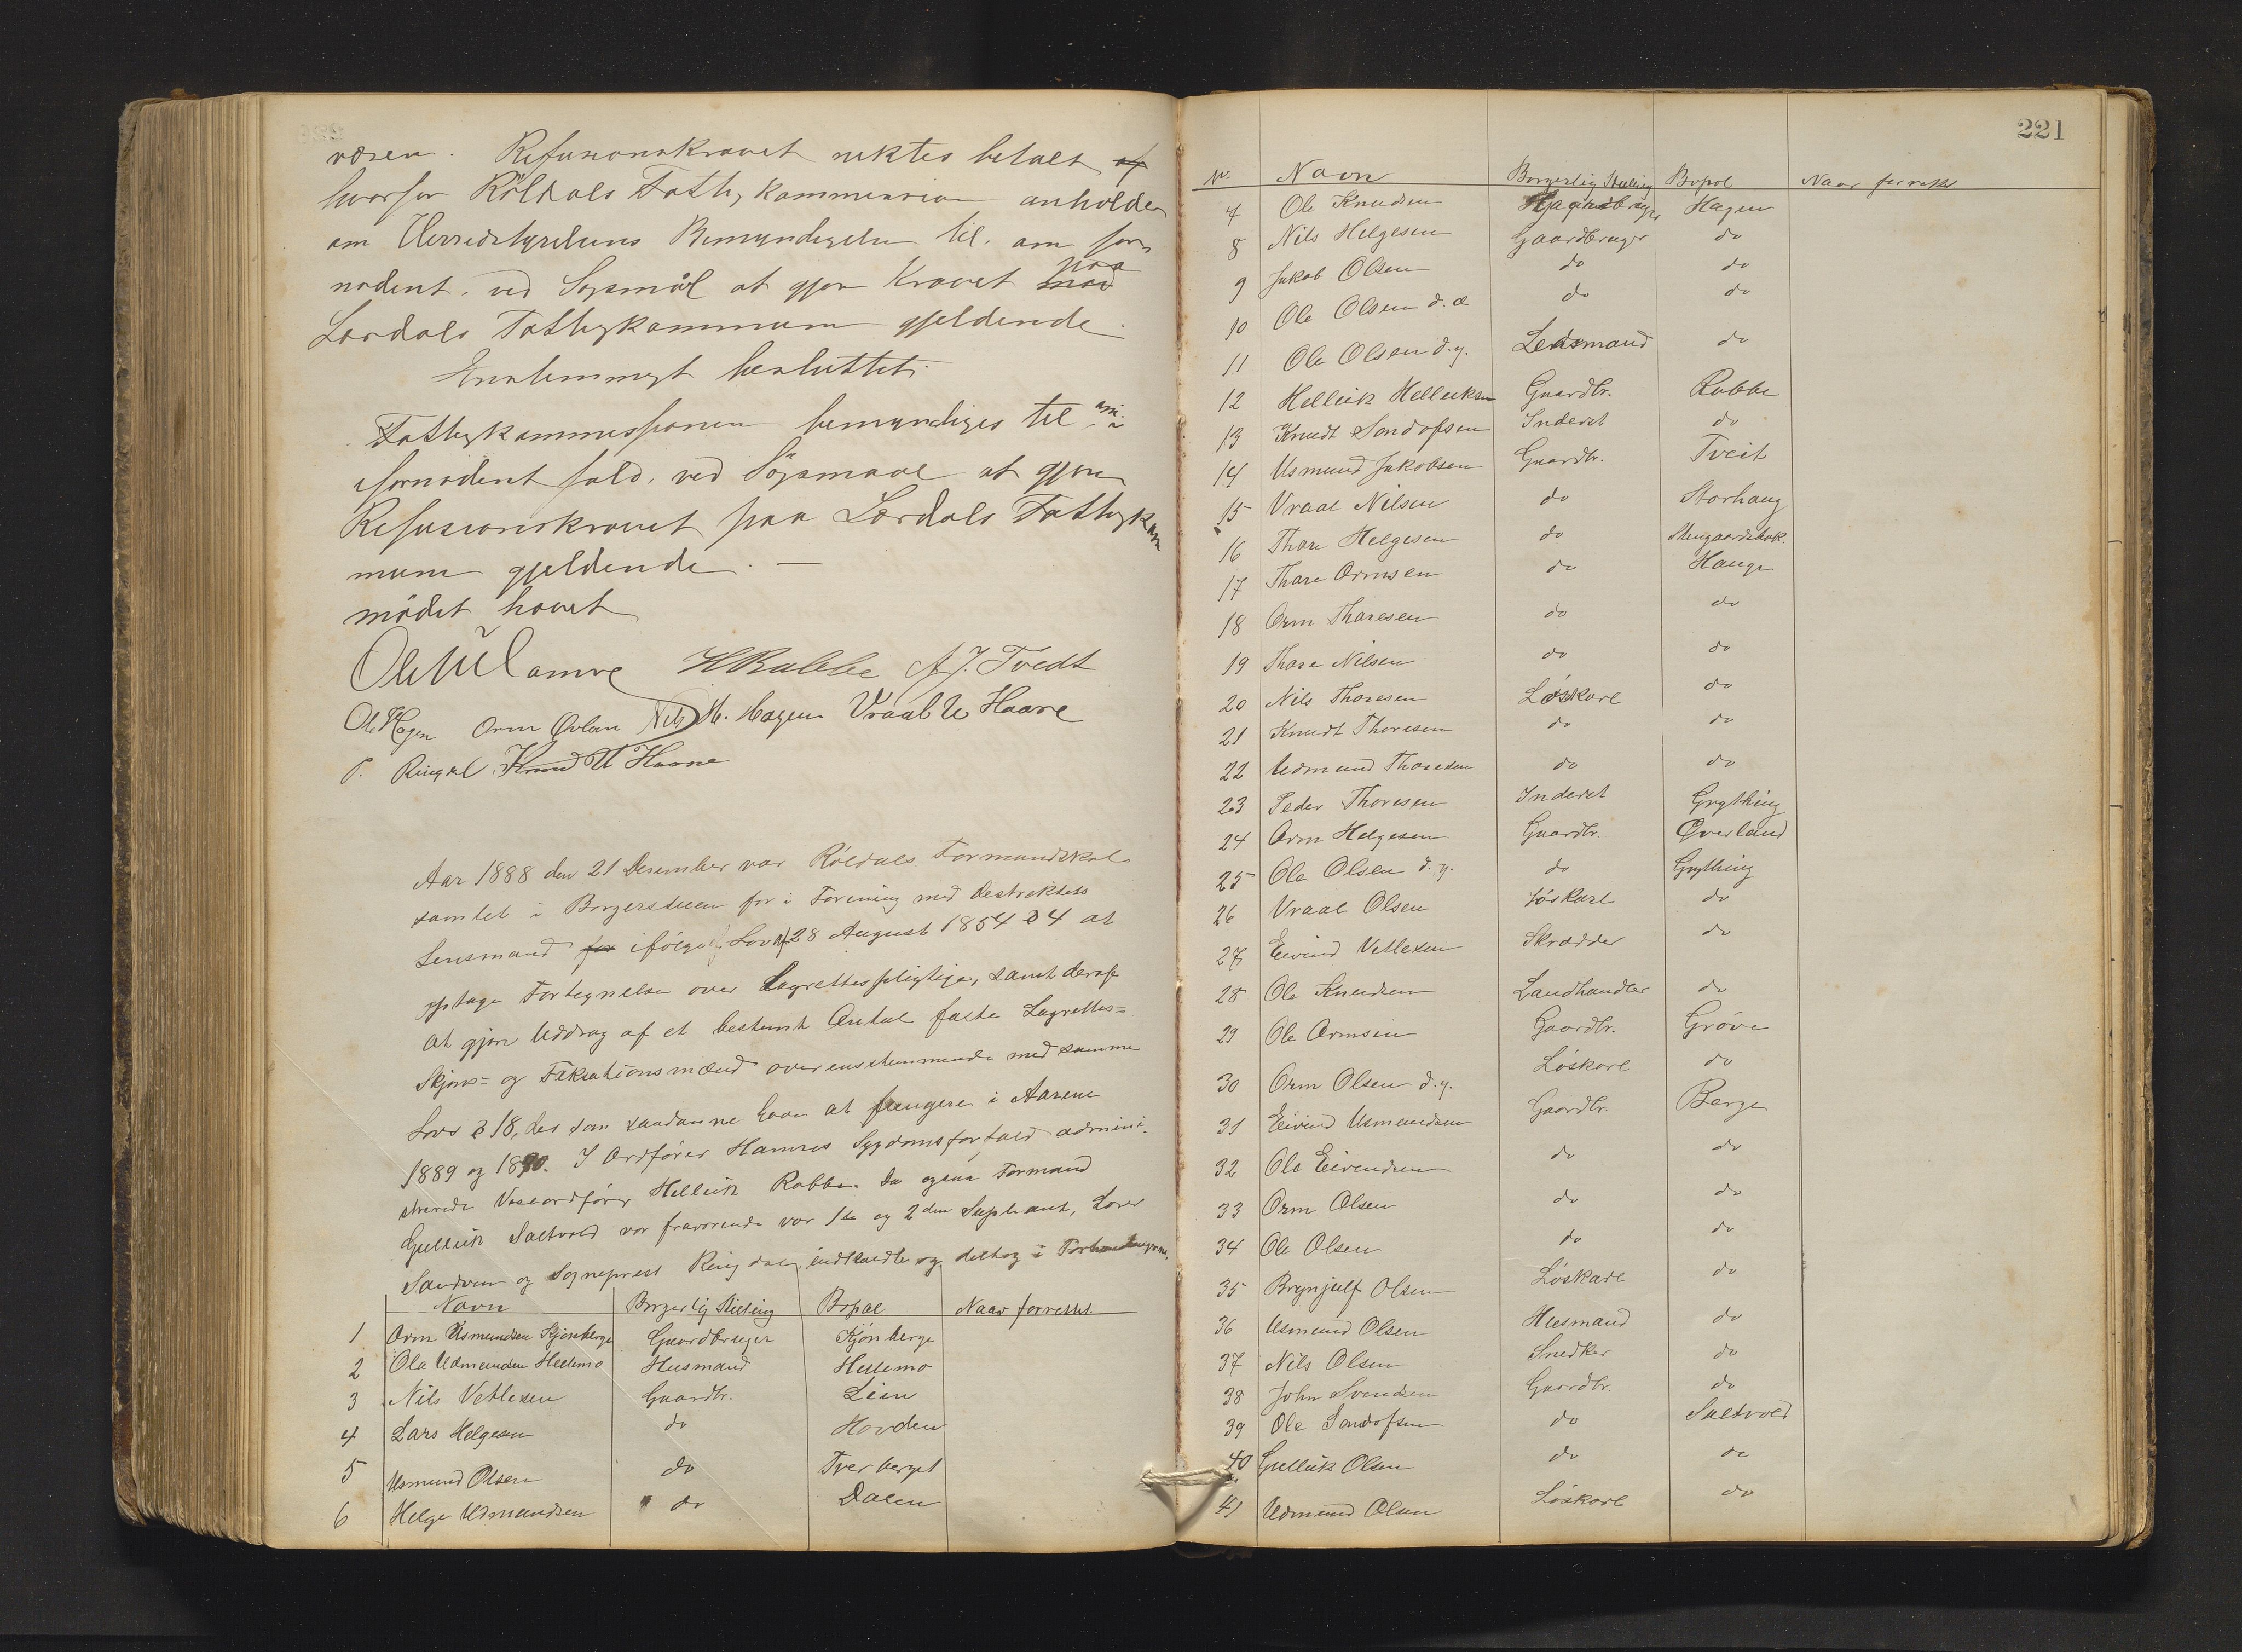 væsen. Refusionskravet nektes betalt af
hvorfor Røldals Fattigkommission anholder
om Herredstyrelsens Bemyndigelse til. om for-
nødent. ved Søgsmål at gjøre Kravet mod paa
Lærdals Fattigkommune gjeldende.
Enstemmigt besluttet:
Fattigkommissionen bemyndiges til om i
fornødent fald. ved Søgsmaal at gjøre
Refusionskravet paa Lærdals Fattigkom
mune gjeldende. —
mødet hævet
Ole Hamre H Rabbe A J. Tvedt
Ole Hagen Orm Øvland Nils H. Hagen Vraal U Haare
P. Ringdal Knud U Haare
Aar 1888 den 21 Desember var Røldals Formandskab
samlet i Borgerstuen for i Forening med Destriktets
Lensmand for ifølge Lov af 28 August 1854 § 4 at
optage Fortegnelse over Lagrettespligtige, samt deraf
at gjøre Uddrag af et bestemt Antal faste Lagrettes=
Skjøns= og Taksationsmænd overensstemmende med samme
Lovs § 18, der som saadanne have at fungere i Aarene
1889 og 1890. I Ordfører Hamres Sygdomsforfald admini-
strerede Viseordfører Helleik Rabbe. Da ogsaa Formand
Gulleik Saltvold var fraværende var 1ste og 2den Supleant,
Sandven og Sogneprest Ringdal indkaldte og deltog i Forhandlingerne.
Navn Borgerlig Stilling Bopæl Naar forrettet
1 Orm Usmundsen Kjønberge Gaardbruger Kjønberge
2 Ole Udmundsen Hellemo Husmand Hellemo
3 Nils Vetlesen Gaardbr. Lien
4 Lars Helgesen do Hovden
5 Usmund Olsen do Tverberget
6 Helge Udmundsen do Dalen
221
Nr. Navn Borgerlig Stilling Bopæl Naar forrettet
7 Ole Knudsen Gaardbruger Hagen
8 Nils Helgesen Gaardbruger do
9 Jakob Olsen do do
10 Ole Olsen d. æ do do
11 Ole Olsen d. y. Lensmand do
12 Helleik Helleiksen Gaardbr. Rabbe
13 Knudt Sondofsen Inderst do
14 Usmund Jakobsen Gaardbr. Tveit
15 Vraal Nilsen do Storhaug
16 Thore Helgesen do
17 Thore Ormsen do Hauge
18 Orm Thoresen do do
19 Thore Nilsen do do
20 Nils Thoresen Løskarl do
21 Knudt Thoresen do do
22 Udmund Thoresen do do
23 Peder Thoresen Inderst Grything
24 Orm Helgesen Gaardbr. Øverland
25 Ole Olsen d. y. do Grything
26 Vraal Olsen Løskarl do
27 Eivind Vetlesen Skrædder do
28 Ole Knudsen Landhandler do
29 Ole Ormsen Gaardbr. Grøve
30 Orm Olsen d. y. Løskarl do
31 Eivind Usmundsen Gaardbr. Berge
32 Ole Eivendsen do do
33 Orm Olsen do do
34 Ole Olsen do do
35 Brynjulf Olsen Løskarl do
36 Usmund Olsen Husmand do
37 Nils Olsen Snedker do
38 John Svendsen Gaardbr. do
39 Ole Sondofsen do Saltvold
40 Gulleik Olsen do do
41 Udmund Olsen Løskarl do